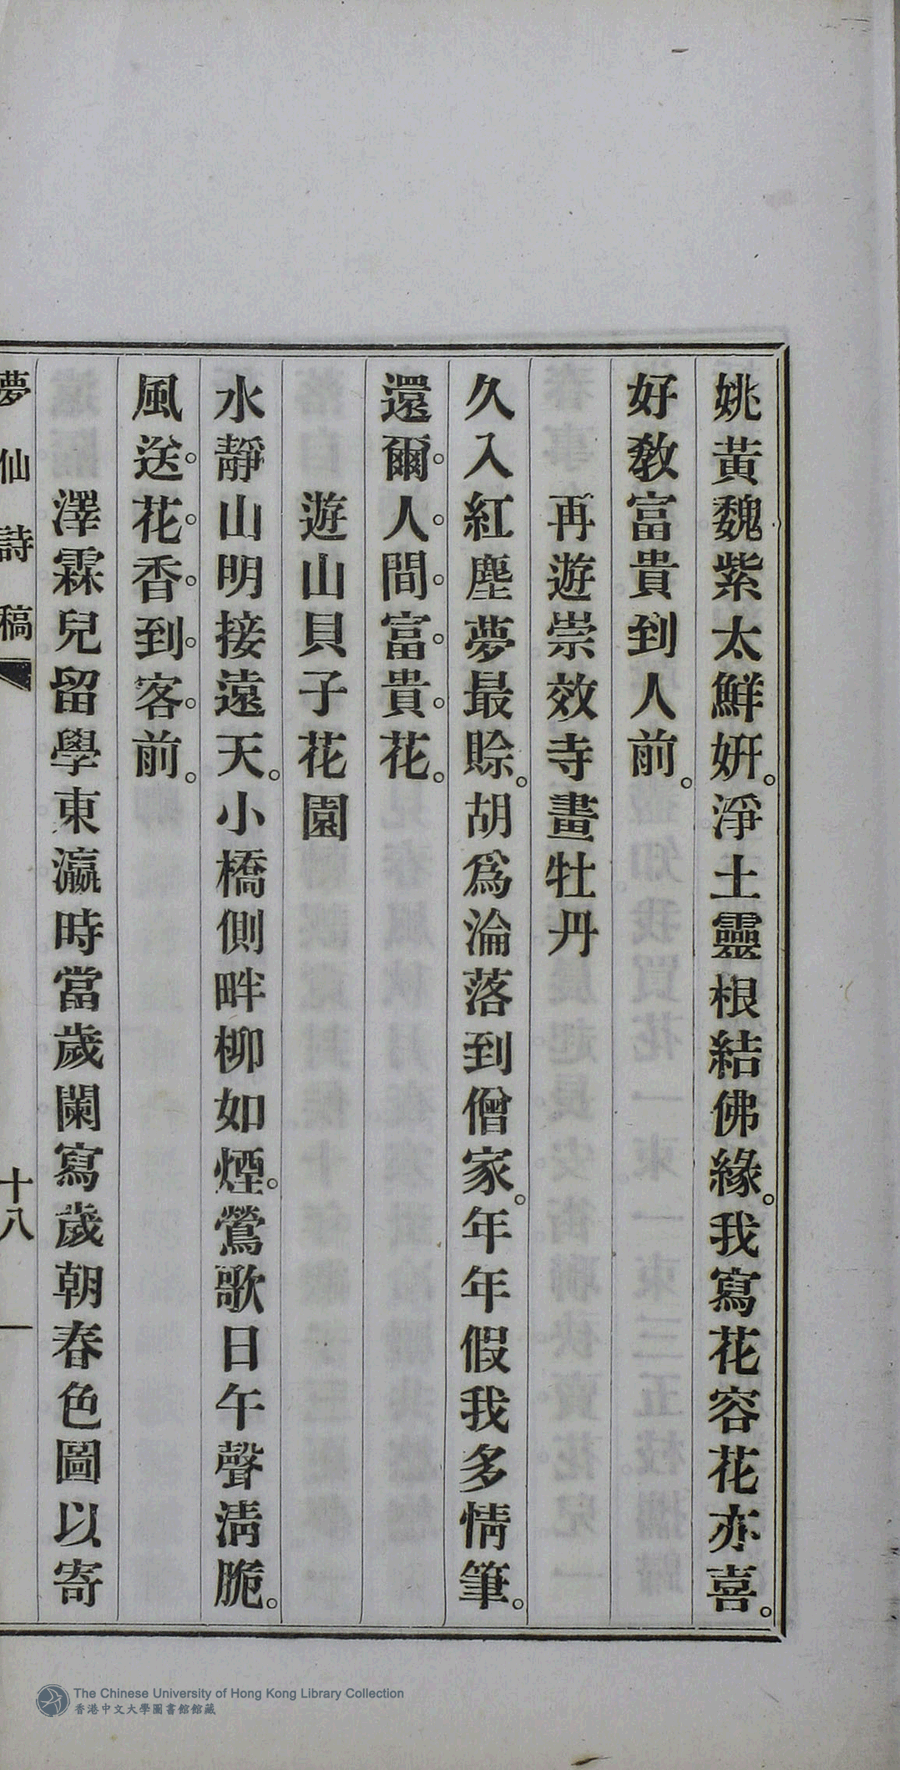 姚黃魏紫太鮮妍。淨土靈根結佛緣。我寫花容花亦喜。
好教富貴到人前。
再遊崇效寺畫牡丹
久入紅塵夢最賒。胡爲淪落到僧家。年年假我多情筆。
還爾。人。間。富。貴。花。
遊山貝子花園
水靜山明接遠天。小橋側畔柳如煙。鶯歌日午聲淸脆。
風送。花。香。到。客。前。
澤霖兒留學東瀛時當歲闌寫歲朝春色圖以寄
夢仙詩稿
十八
The Chinese University of Hong Kong Library Collection
香港中文大學圖書館館藏